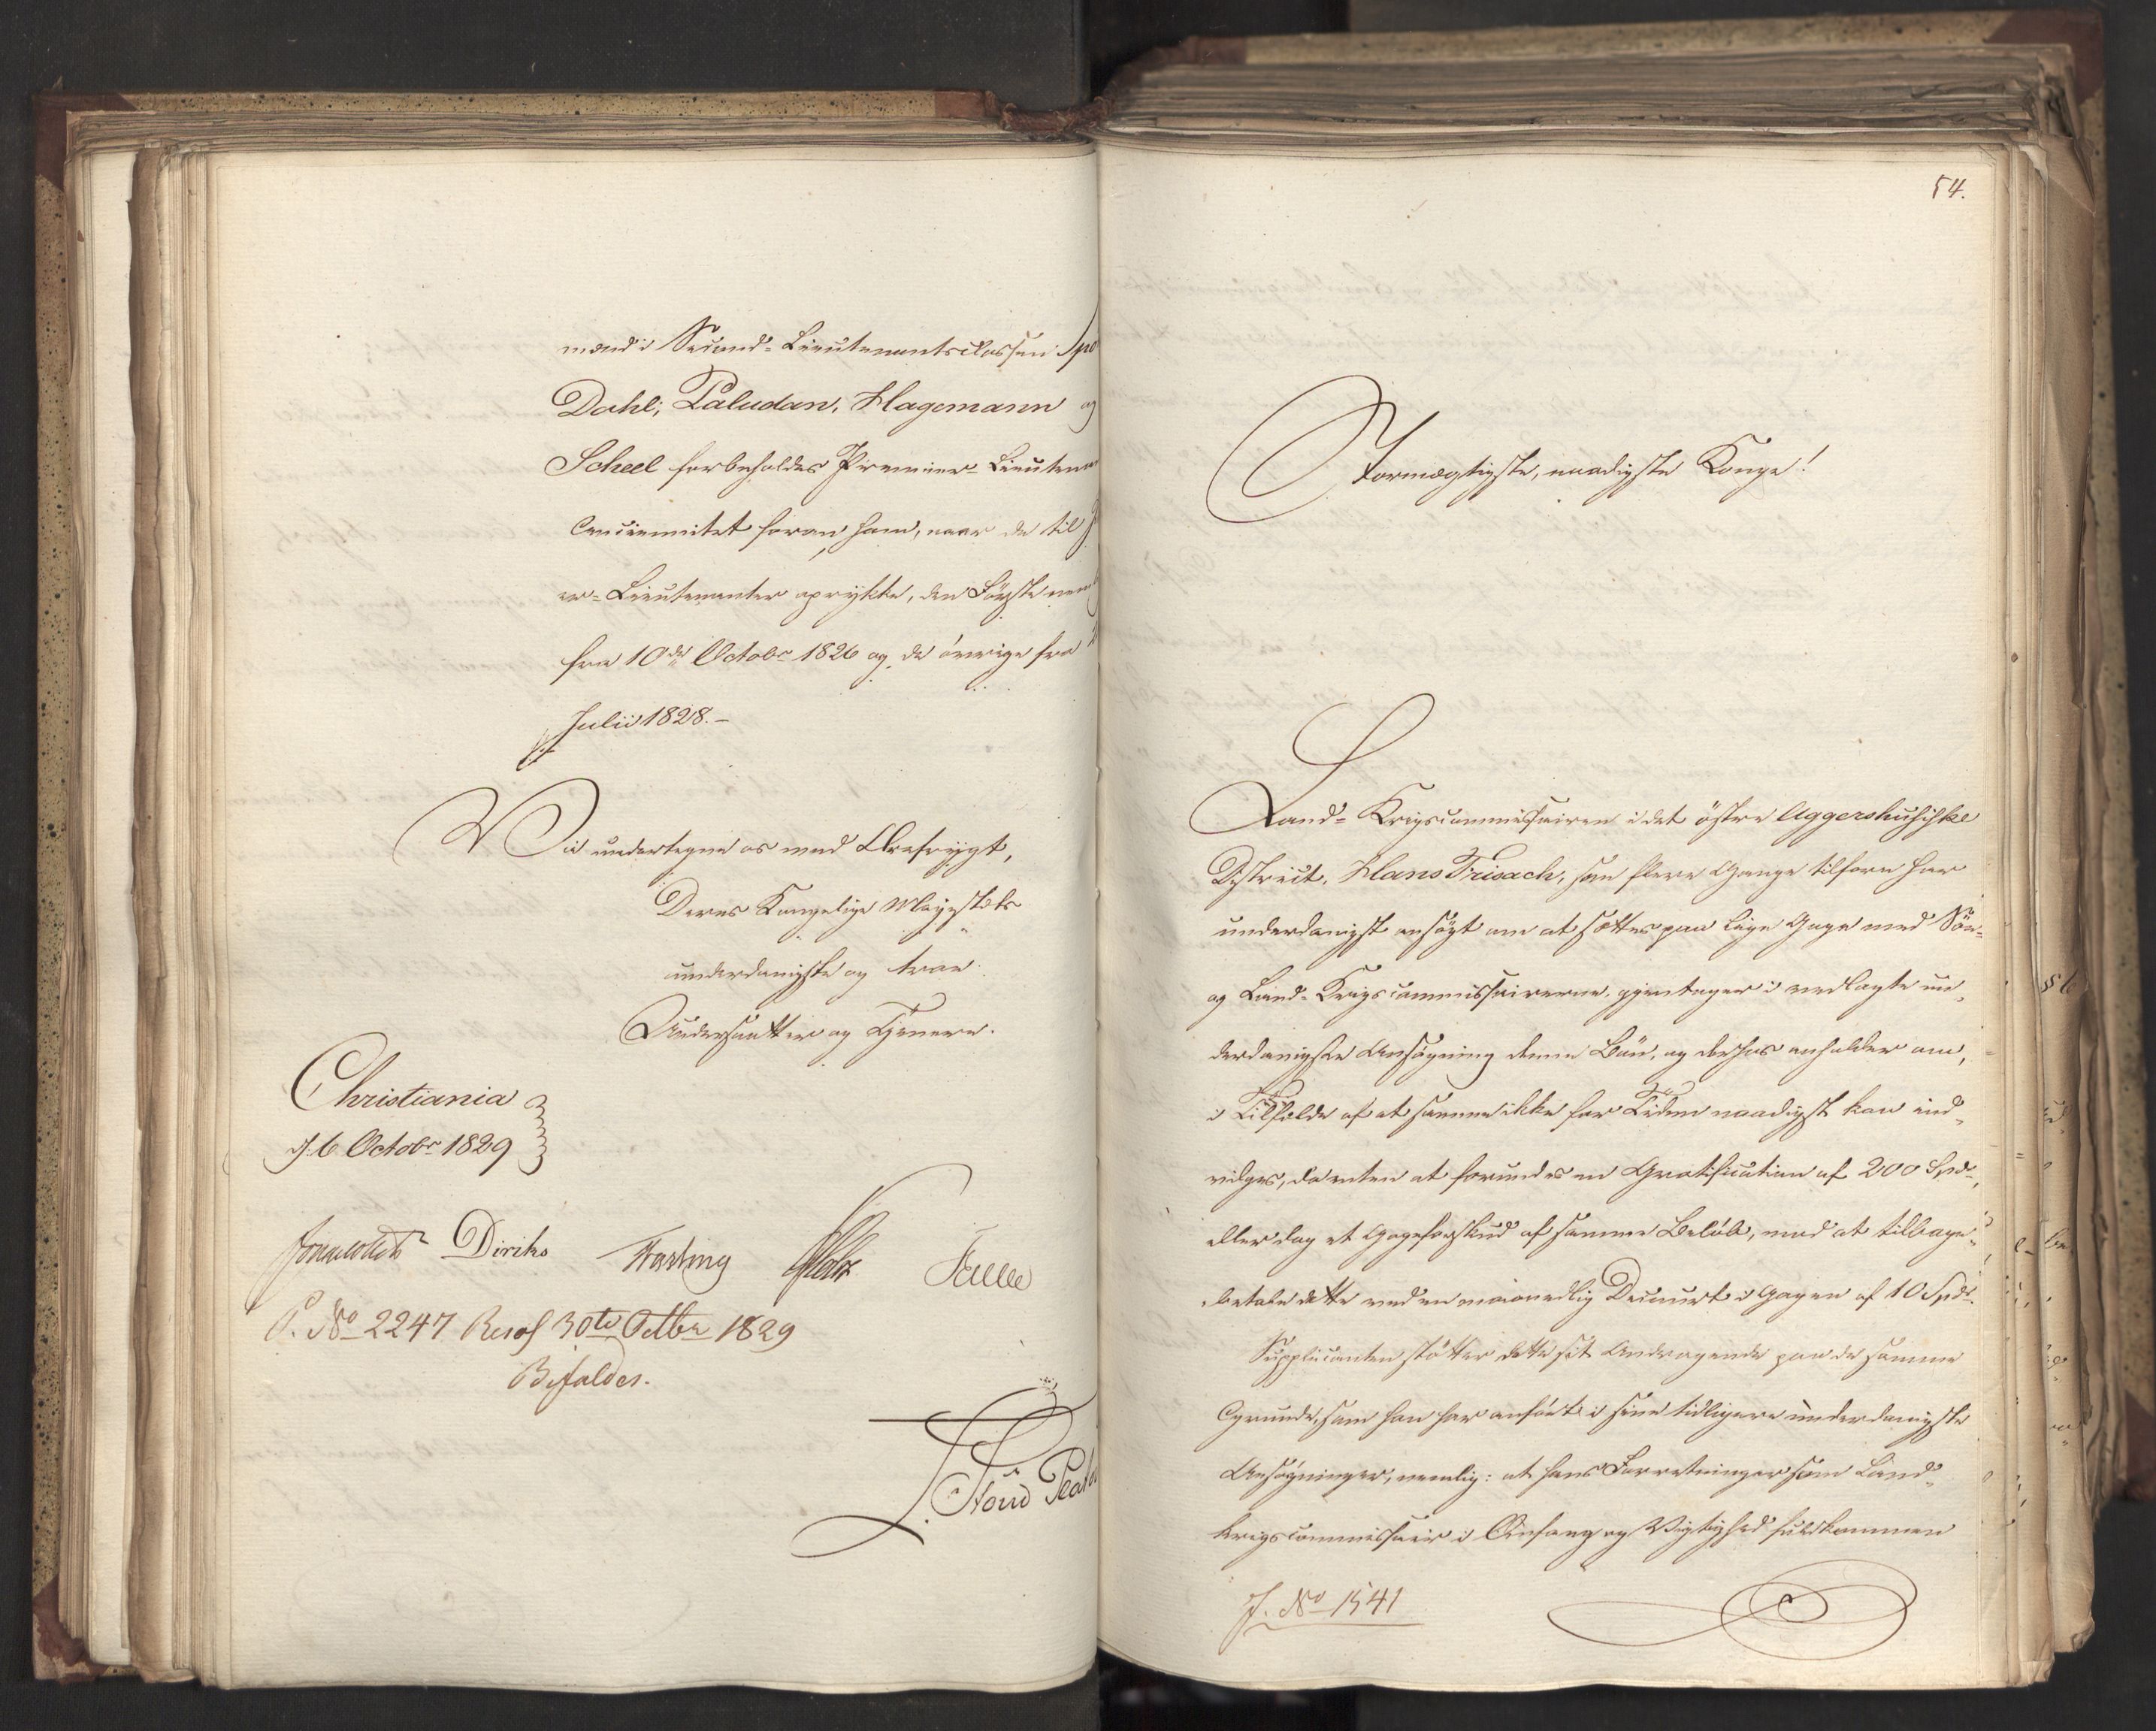 mænd i Secund-Lieutenantsclassen
Dahl, Paludan, Hagemann og
Scheel forbeholdes Premier-Lieutenan
Anciennitet foran ham, naar de til
er-Lieutenanter oprykke, den Første
fra 10de Octobr 1826 og de øvrige fra
Julii 1828.-
Vi undertegne os med Ærefrygt,
Deres Kongelige Majestæts
underdanigste og troe
Undersaatter og Tjenere.
Christiania
d. 6 Octobr 1829
Diriks Fasting
P. No 2247 Resol 30te Octbr 1829
Bifaldes.
54.
Stormægtigste, naadigste Konge!
Land-Krigscommissairen i det østre Aggershusiske
District, Hans Frisach, som flere Gange tilforn har
underdanigst ansøgt om at sættes paa lige Gage med Söe-
og Land-Krigscommissairerne, gjentager i vedlagte un-
derdanigste Ansøgning denne Bøn, og derhos anholder om,
i Tilfælde af at samme ikke for Tiden naadigst kan ind-
vilges, da enten at forundes en Gratification af 200 Spd,
eller dog et Gageforskud af samme Beløb, mod at tilbage-
betale dette med en maanedlig Decourt i Gagen af 10 Spd.
Supplicanten støtter dette sit Andragende paa de samme
Grunde, som han har anført i sine tidligere underdanigste
Ansøgninger, nemlig: at hans Forretninger som Land-
krigscommissair i Omfang og Vigtighed fuldkommen
J. No 1541